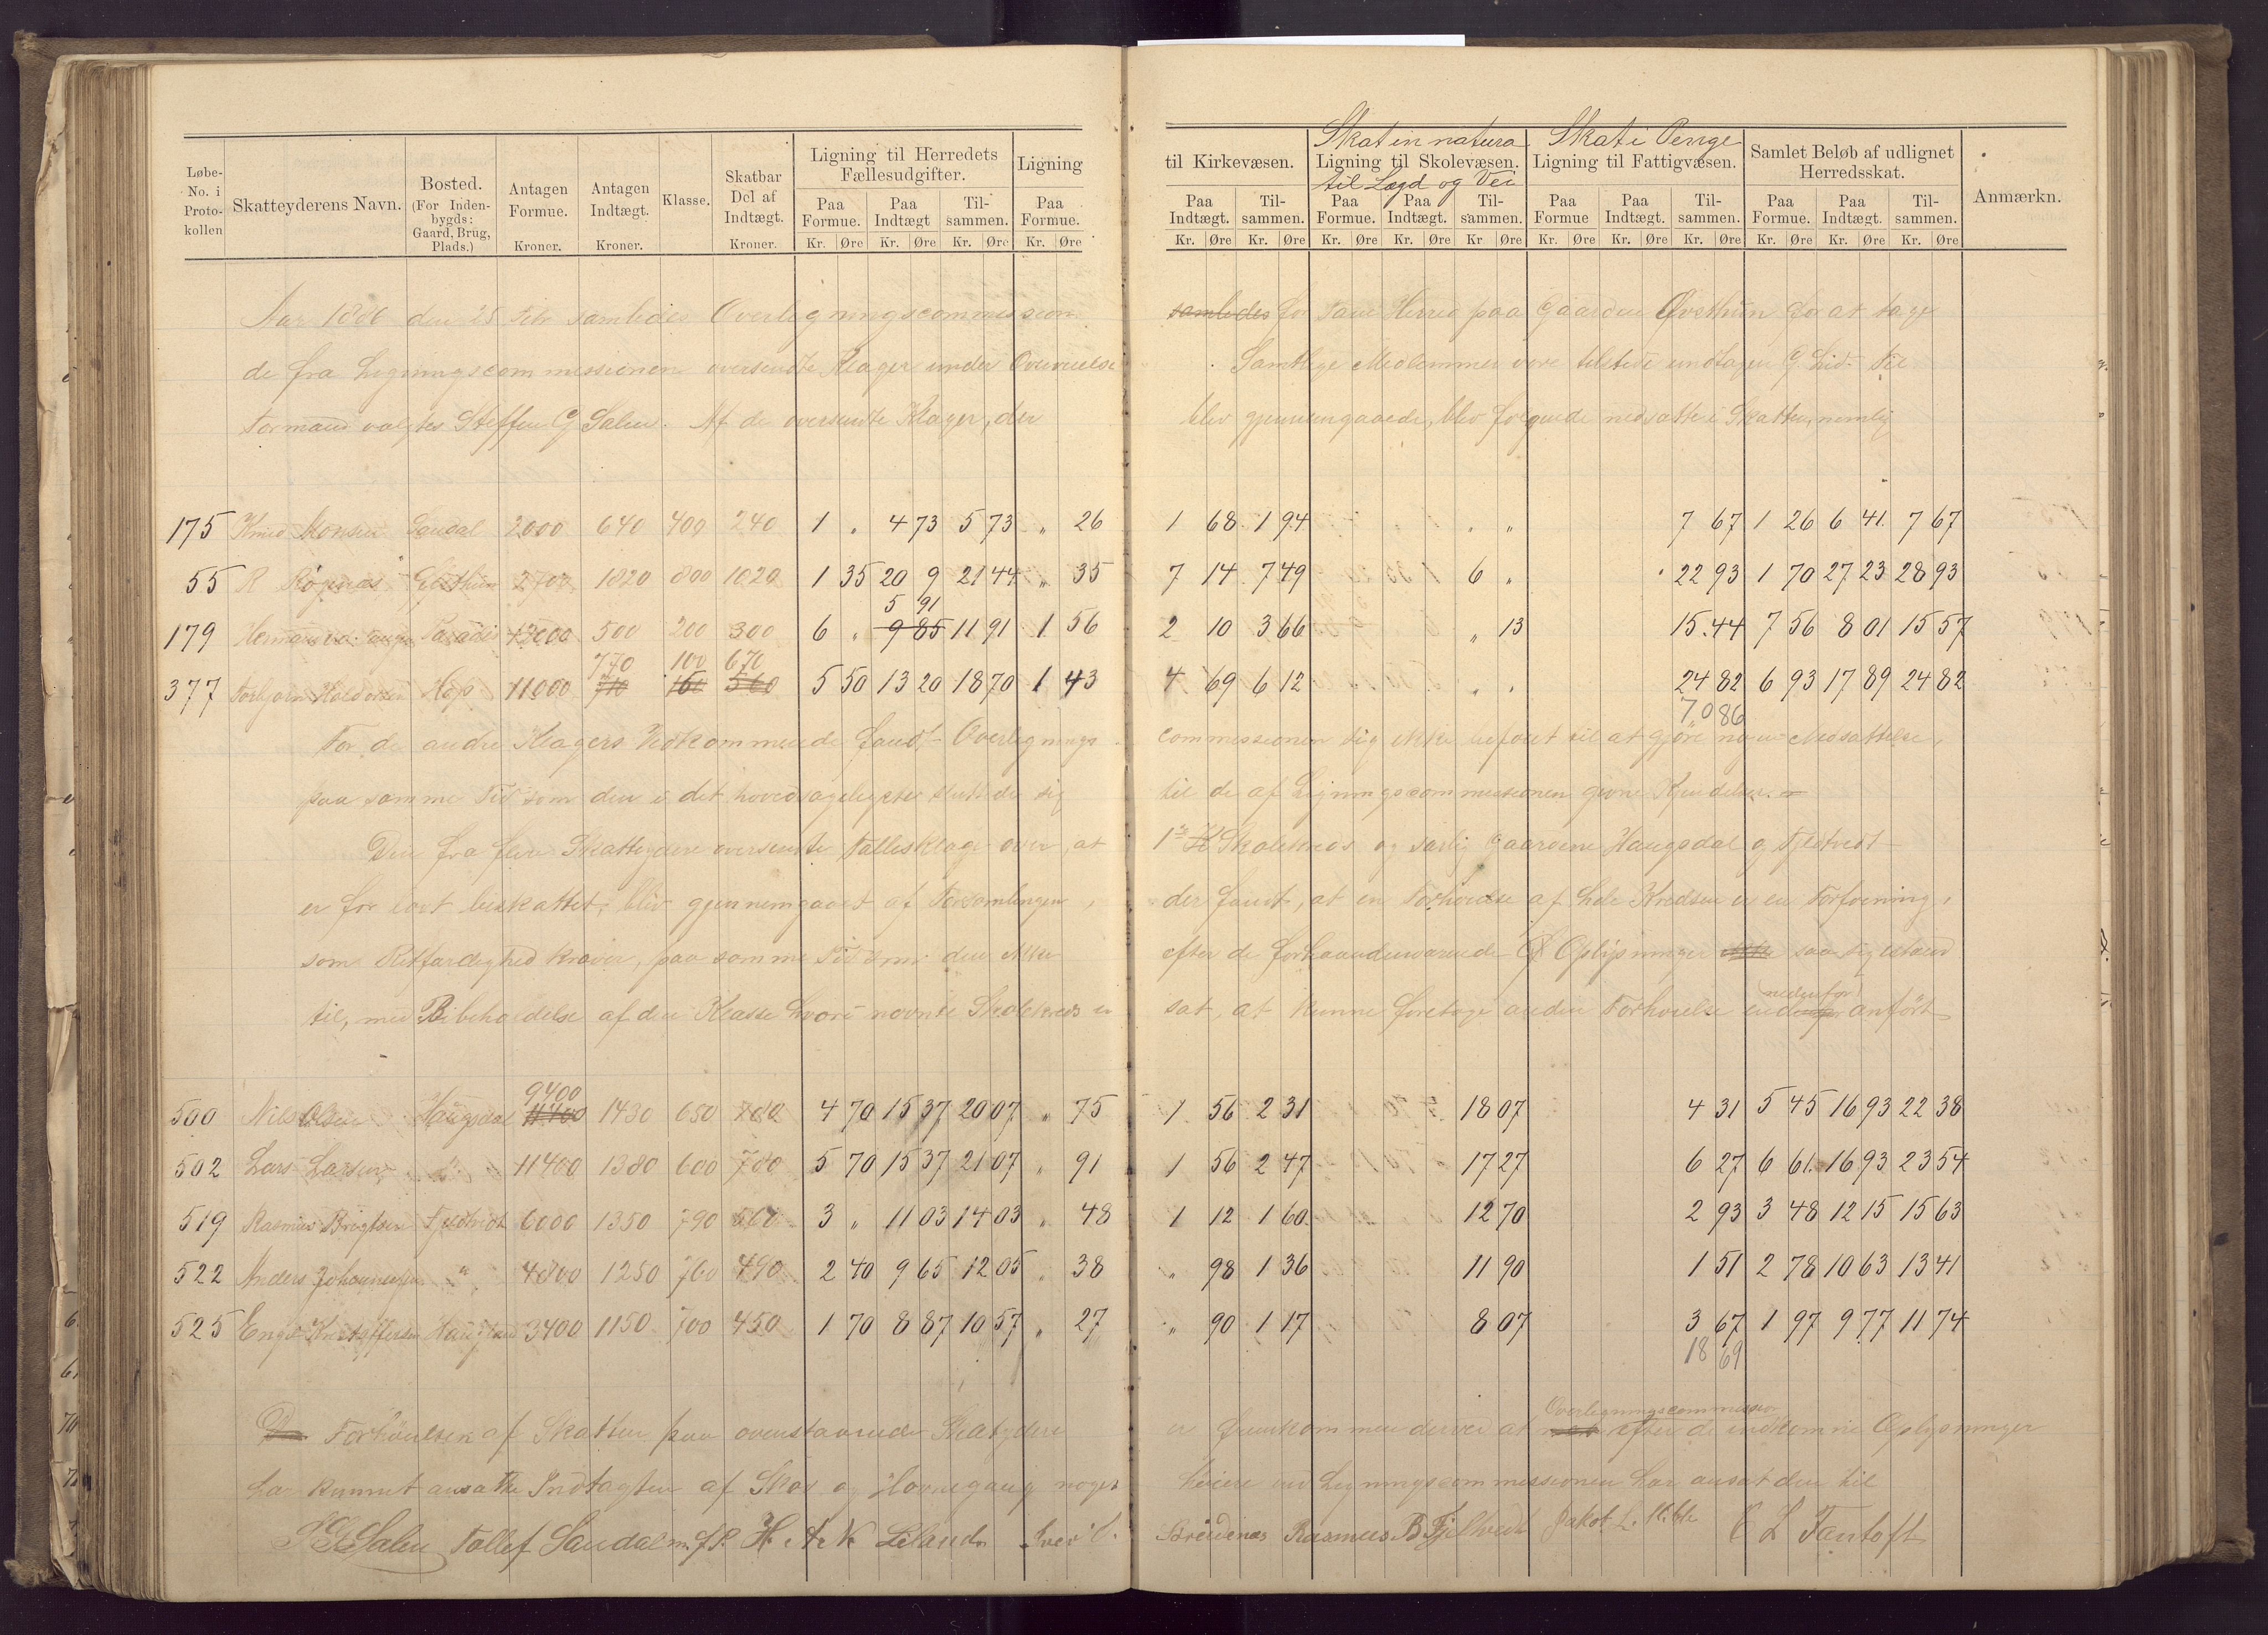 Skat in natura Skat i Penge
Løbe-No. i Proto-kollen
Skatteyderens Navn.
Bosted. (For Inden-bygds: Gaard, Brug, Plads.)
Antagen Formue. Kroner.
Antagen Indtægt. Kroner.
Klasse.
Skatbar Del af Indtægt. Kroner.
Ligning til Herredets Fællesudgifter.
Paa Formue. Paa Indtægt Til-sammen.
Kr. Øre Kr. Øre Kr. Øre
Ligning
Paa Formue.
Kr. Øre
til Kirkevæsen.
Paa Indtægt. Til-sammen.
Kr. Øre Kr. Øre
Ligning til Skolevæsen.
til Lægd og Vei
Paa Formue. Paa Indtægt. Til-sammen.
Kr. Øre Kr. Øre Kr Øre
Ligning til Fattigvæsen.
Paa Formue Paa Indtægt. Til-sammen.
Kr. Øre Kr. Øre Kr. Øre
Samlet Beløb af udlignet Herredsskat.
Paa Formue. Paa Indtægt. Til-sammen.
Kr. Øre Kr. Øre Kr. Øre
Anmærkn.
Aar 1886 den 25 Febr samledes Overligningscommission samledes for Fane Herred paa Gaarden Øvsthun for at tage
de fra Ligningscommissionen oversendte Klager under Overveielse. Samtlige Medlemmer vare tilstede undtagen Lid. Til
Formand valgtes Steffen G Salen. Af de oversendte Klager, der blev gjennemgaaede, blev følgende nedsatte i Skatten, nemlig
175 Knud Monsen Sandal 2000 640 400 240 1 " 4 73 5 73 " 26 1 68 1 94 " " 7 67 1 26 6 41 7 67
55 R Røgenæs 2700 1820 800 1020 1 35 20 9 21 44 " 35 7 14 7 49 6 " 22 93 1 70 27 23 28 93
5 91
179 Paradis 12000 500 200 300 6 " 9 85 11 91 1 56 2 10 3 66 " 13 15.44 7 56 8 01 15 57
770 100 670
377 Torbjørn Haldorsen Hop 11000 710 150 560 5 50 13 20 18 70 1 43 4 69 6 12 " " 24 82 6 93 17 89 24 82
70 86
For de andre Klagers Vedkommende fandt Overlignings commissionen sig ikke beføiet til at gjøre nogen Nedsættelse,
paa samme Tid som den i det hovedsageligste sluttede sig til de af Ligningscommissionen givne Kjendelser.
Den fra flere Skatteydere oversendte Fællesklage over, at 1ste Skolekreds og særlig Gaardene Haugsdal og Fjeldtvedt
er for lavt beskattet, blev gjennemgaaet af Forsamlingen, der fandt, at en Forhøielse af hele Kredsen er en Fordrening,
som Retfærdighed kræver, paa samme Tid som den ikke efter de forhaandenværende Oplysninger saa sig istand
nedenfor
til, med Bibeholdelse af den Klasse hvori nævnte Skolekreds er sat, at kunne foretage anden Forhøielse end anført
9400
500 Nils Olsen Haugsdal 11400 1430 650 780 4 70 15 37 20 07 " 75 1 56 2 31 18 07 4 31 5 45 16 93 22 38
502 Lars Larsen " 11400 1380 600 780 5 70 15 37 21 07 " 91 1 56 2 47 17 27 6 27 6 61 16 93 23 54
519 Rasmus Brigtsen Fjeldtvedt 6000 1350 790 560 3 " 11 03 14 03 " 48 1 12 1 60 12 70 2 93 3 48 12 15 15 63
522 Anders Johannessen " 4800 1250 760 490 2 40 9 65 12 05 " 38 " 98 1 36 11 90 1 51 2 78 10 63 13 41
525 3400 1150 700 450 1 70 8 87 10 57 " 27 " 90 1 17 8 07 3 67 1 97 9 77 11 74
18 69
Overligningscommission
Forhøielsen af Skatten paa ovenstaaende Skatydere er fremkommen derved at efter de indkomne Oplysninger
har kunnet ansætte Indtægten af Skov og Havnegang noget høiere end Ligningscommissionen har ansat den til
S G Salen Tollef Sandal m. f. P. H. A. K Liland Rasmus B Fjeldtvedt Jakob L. O L Fantoft